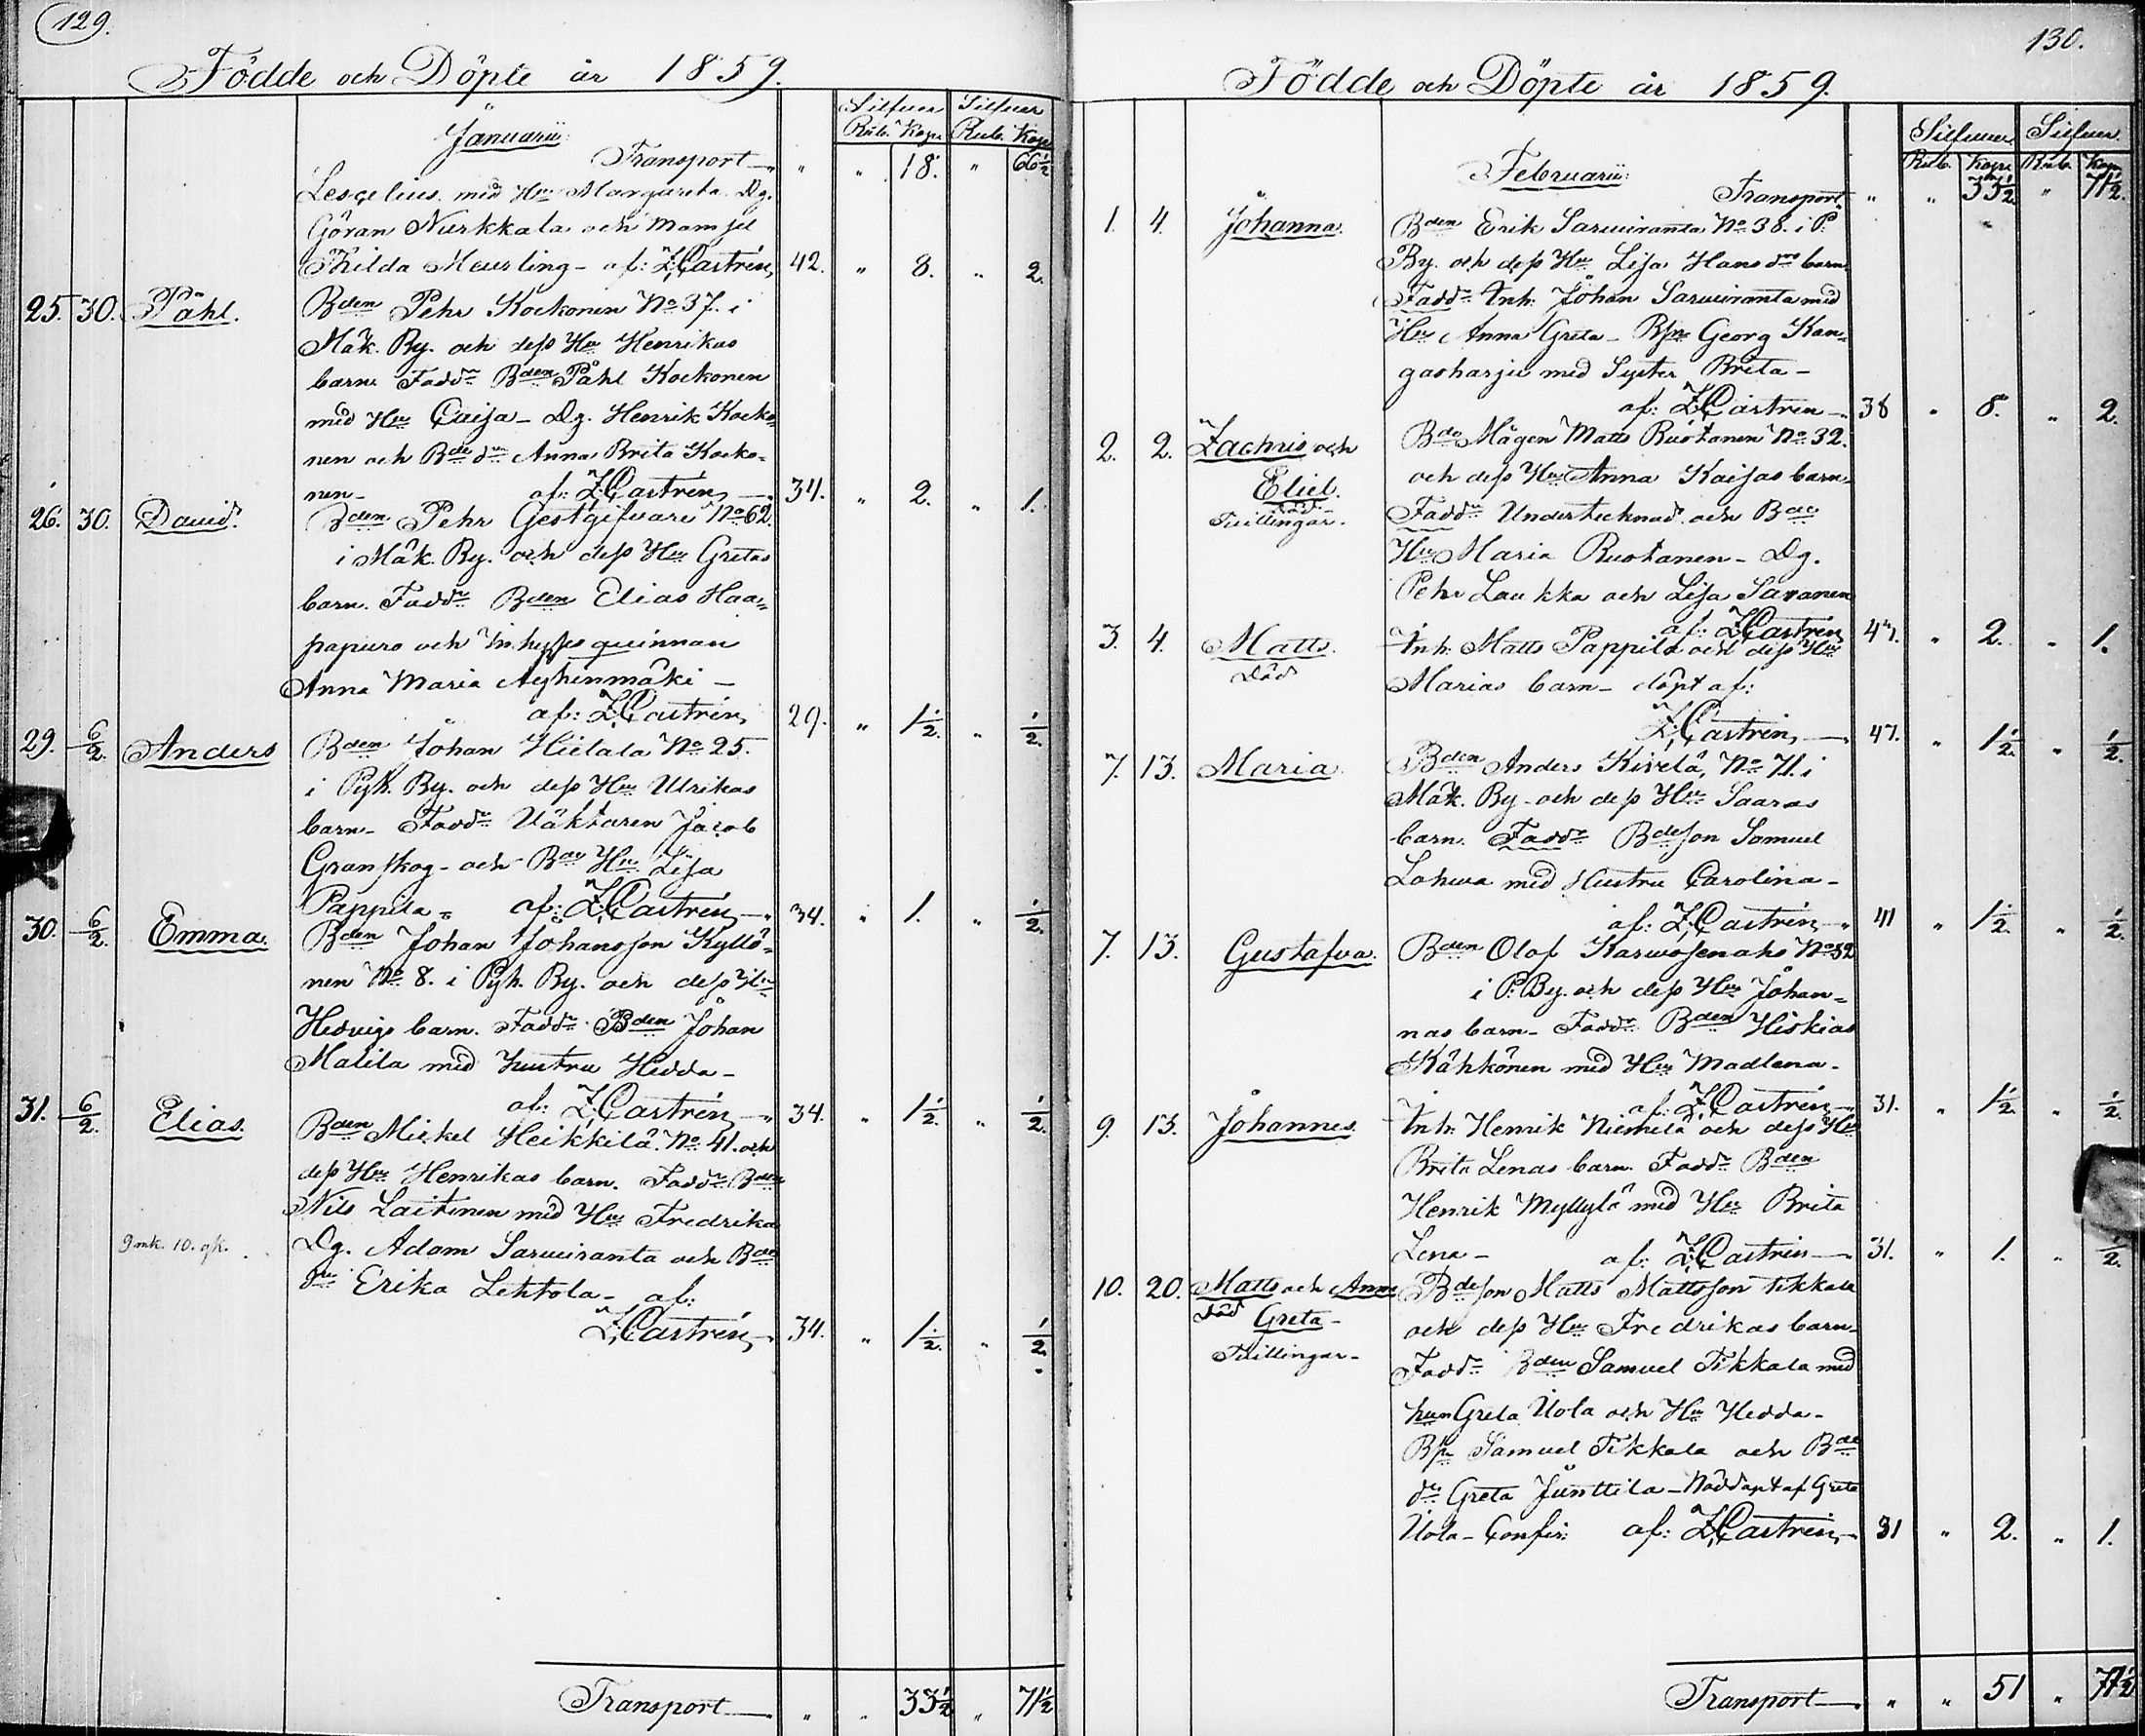 129.
Födde och Döpte år 1859.
Silfver Silfver
Januarii Rub. Kop. Rub. Kop.
Transport " " 18. " 66½
med Hu Margareta. Dg.
Göran Nurkkala och Mamsel
Thilda Meurling - af: Z,Castrén, 42. " 8. " 2.
25. 30. Påhl. Bden Pehr Kockonen No 37. i
Mäk. By. och dess Hu Henrikas
barn. Faddr Bden Påhl Kockonen
med Hu Caisa - Dg. Henrik Kocko=
nen och Bde dr Anna Brita Kocko=
nen - af: Z,Castrén, 34. " 2. " 1.
26. 30. David. Bden Pehr Gestgifvari No 62.
i Mäk. By. och dess Hu Gretas
barn. Faddr Bden Elias Haa=
papuro och Inhysesquinnan
Anna Maria -
af: Z,Castrén, 29. " 1½. " ½.
29. 6/2. Anders Bden Johan Hietala No 25.
i Pyh. By. och dess Hu Ulrikas
barn - Faddr Väktaren Jacob
Granskog - och Bde Hu Lisa
Pappila = af: Z,Castrén, 34. " 1. " ½.
30. 6/2. Emma. Bden Johan Johansson Kyllö=
nen No 8. i Pyh. By. och dess Hu
Hedvigs barn. Faddr Bden Johan
Malila med hustru Hedda -
af: Z,Castrén, 34. " 1½. " ½.
31. 6/2. Elias. Bden Mickel Heikkilä. No 41. och
dess Hu Henrikas barn. Faddr Bden
Nils Laitinen med Hu Fredrika
9 mk. 10. Dg. Adam Sarviranta och Bde
dr Erika Lehtola - af:
Z,Castrén, 34. " 1½. " ½.
Transport " " 33½ " 71½
130.
Födde och Döpte år 1859.
Silfver Silfver.
Februarii: Rub. Kop. Rub. Kop.
Transport " " 33½ " 71½.
1. 4. Johanna. Bden Erik Sarviranta No 38. i P.
By. och dess Hu Lisa Hans dr barn.
Faddr Inh: Johan Sarviranta med
Hu Anna Greta - Bsn Georg Kan=
gasharju med Syster Brita -
af: Z,Castrén 38 " 8. " 2.
2. 2. Zachris och Bde Mågen Matts Ruotanen No 32.
Eliel. och dess Hu Anna Kaisas barn -
död Faddr Undertecknad och Bde
Tvillingar. Hu Maria Ruotanen - Dg.
Pehr Laukka och Lisa Savanen
af: Z,Castrén " 2. " 1.
3. 4. Matts. Inh: Matts Pappila och dess Hu
Död Marias barn - döpt af:
Z,Castrén, 47. " 1½. " ½.
7. 13. Maria. Bden Anders Kivelä, No 71. i
Mäk. By - och dess Hu Saaras
barn. Faddr Bdeson Samuel
Lohwa med Hustru Carolina -
af: Z,Castrén 41 " 1½. " ½.
7. 13. Gustafva. Bden Olof Karwosenaho No 32
i P. By. och dess Hu Johan=
nas barn - Faddr Bden Hiskias
Kähkönen med Hu Madlena.
af: Z,Castrén, 31. " 1½. " ½.
9. 13. Johannes. Inh: Henrik Niemelä och dess Hu
Brita Lenas barn. Faddr Bden
Henrik Myllylä med Hu Brita
Lena - af: Z,Castrén 31. " 1. " ½.
10. 20. Matts och Anna Bdeson Matts Mattsson Tikkala
Död Greta - och dess Hu Fredrikas barn -
Tvillingar - Faddr Bden Samuel Tikkala med
Greta Uola och Hu Hedda -
Bsn Samuel Tikkala och Bde
dr Greta Junttila - Nöddöpt af Greta
Uola - Confir: af: Z,Castrén, 31 " 2. " 1.
Transport " " 51 " 77½